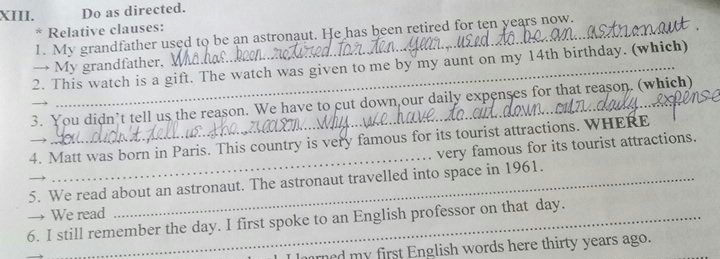 XIII. Do as directed.
* Relative clauses:
1. My grandfather used to be an astronaut. He has been retired for ten years now.
→ My grandfather, Who has been retired for ten year, used to be an astronaut.
2. This watch is a gift. The watch was given to me by my aunt on my 14th birthday. (which)
→
3. You didn't tell us the reason. We have to cut down our daily expenses for that reason. (which)
→ You didn't tell us the reason why we have to cut down our daily expense
4. Matt was born in Paris. This country is very famous for its tourist attractions. WHERE
→ very famous for its tourist attractions.
5. We read about an astronaut. The astronaut travelled into space in 1961.
→ We read
6. I still remember the day. I first spoke to an English professor on that day.
→
I learned my first English words here thirty years ago.